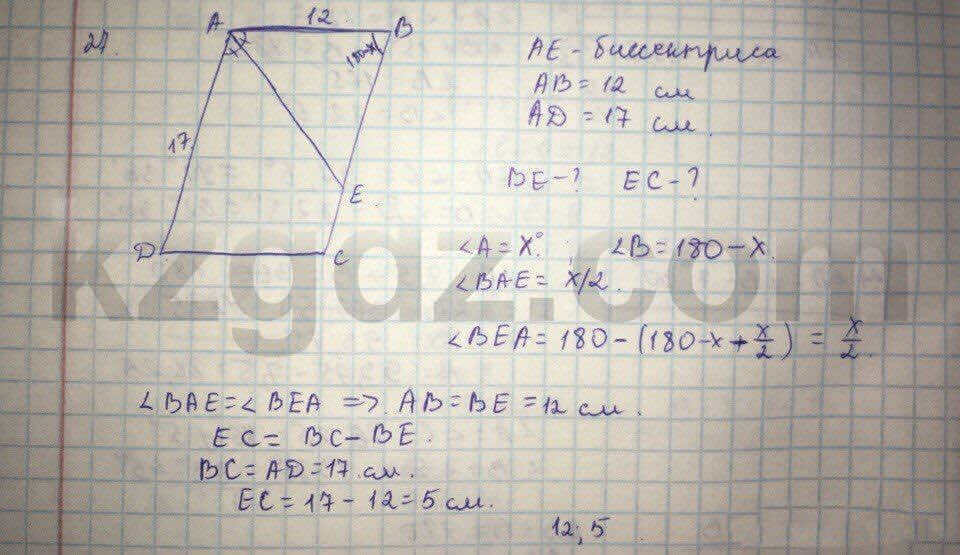 24.
A 12 B
180-x
17
E.
D C
AE - биссектриса
AB = 12 см
AD = 17 см.
BE-? EC-?
∠A = x°; ∠B = 180 - x.
∠BAE = x/2.
∠BEA = 180 - (180-x+x/2) = x/2.
∠BAE = ∠BEA => AB = BE = 12 см.
EC = BC - BE.
BC = AD = 17 см.
EC = 17 - 12 = 5 см.
12; 5
kzgdz.com